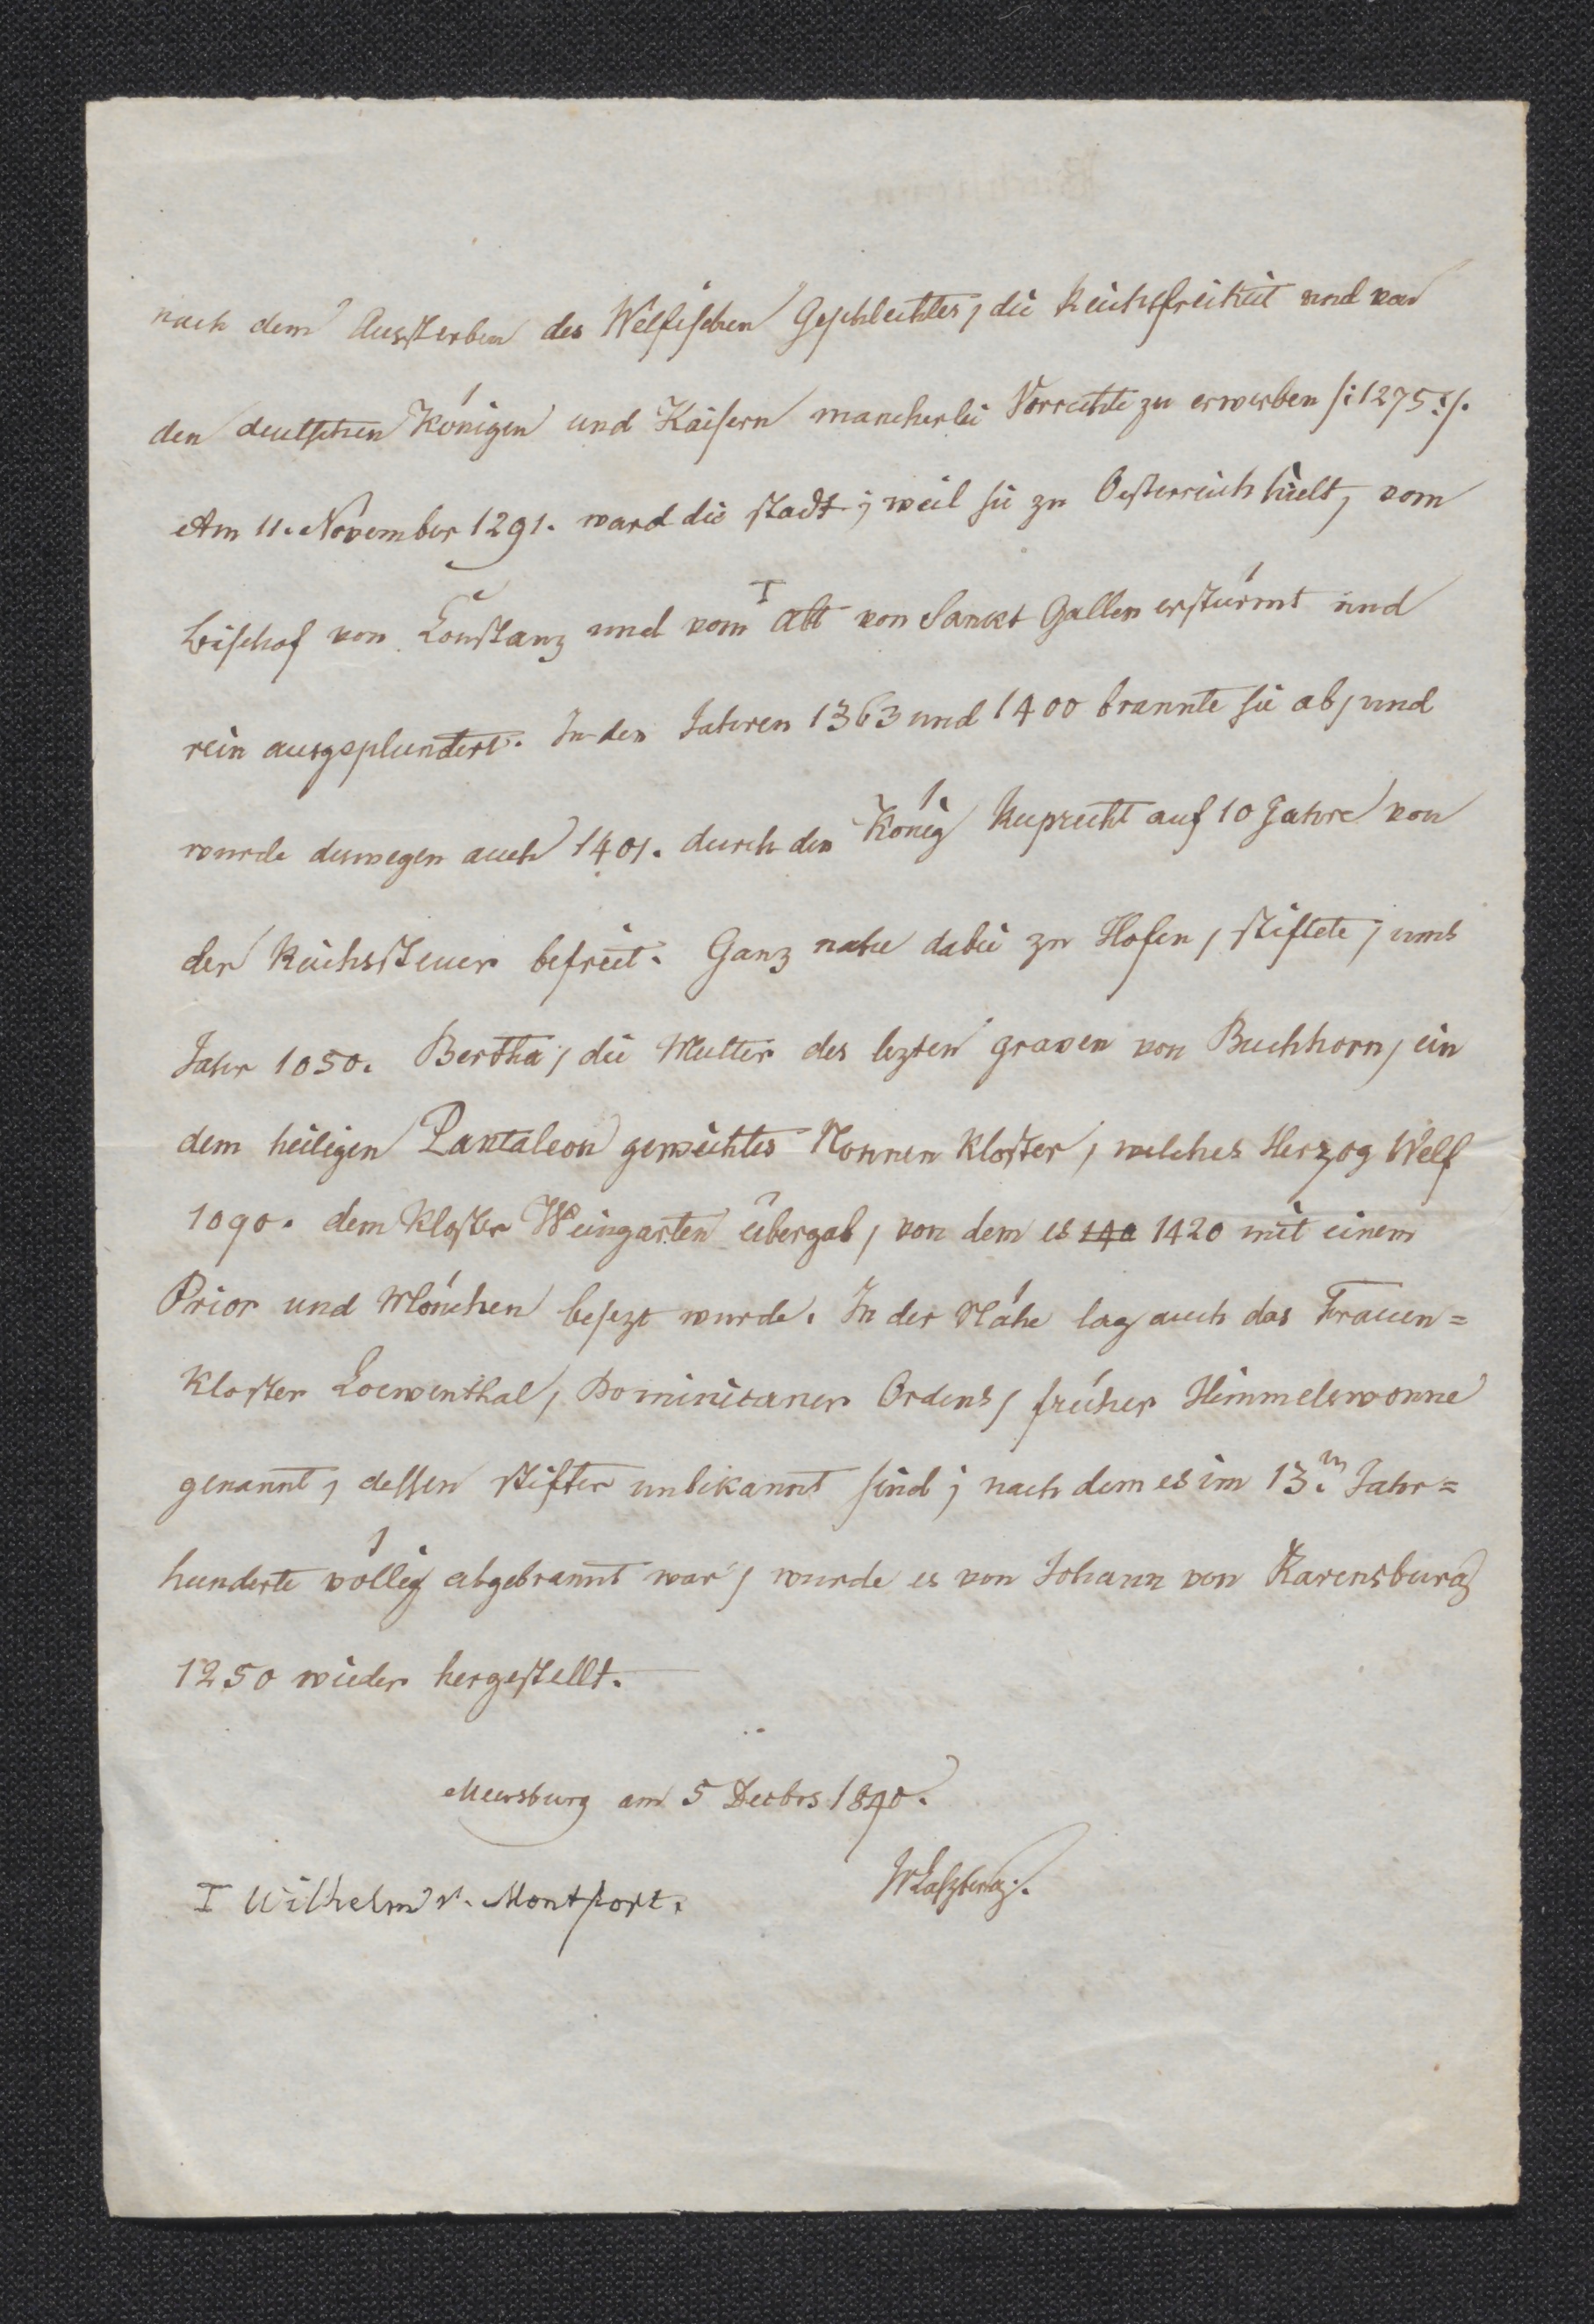 nach dem Aussterben des Welfischen Geschlechtes, die Reichsfreiheit und von
den deutschen Königen und Kaisern mancherlei Vorrechte zu erwerben /: 1275 :/.
Am 11. November 1291. ward die stadt, weil sie zu Oesterreich hielt, vom
bischof von Constanz und vom I abt von Sankt Gallen erstürmt und
rein ausgeplundert. In den Jahren 1363 und 1400 brannte sie ab, und
wurde deswegen auch 1401. durch den König Ruprecht auf 10 Jahre von
der Reichssteuer befreit. Ganz nahe dabei zu Hofen, stiftete, ums
Jahr 1050. Bertha, die Mutter des lezten graven von Buchhorn, ein
dem heiligen Pantaleon geweihtes Nonnen kloster, welches Herzog Welf
1090. dem kloster Weingarten übergab, von dem es 140 1420 mit einem
Prior und Mönchen besezt wurde. In der Nähe lag auch das Frauen=
kloster Loewenthal, Dominicaner Ordens, früher Himmelswonne
genannt, dessen stifter unbekannt sind; nach dem es im 13.n Jahr=
hunderte völlig abgebrannt war, wurde es von Johann von Ravensburg
1250 wieder hergestellt.
Meersburg am 5 Decbrs 1840.
JvLaszberg.
I Wilhelm v. Montfort.